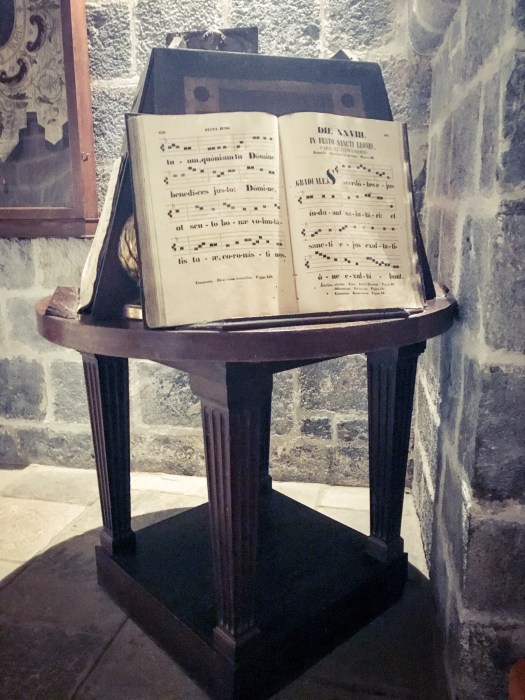 tu - um, quóniam tu Dómine
benedíces justo: Dómine,
ut scu - to bo - næ volun - tá -
tis tu - æ, co - ro - nás - ti nos.
DIE XXVIII.
IN FESTO SANCTI LEONIS,
GRADUALE. Sacerdó - tes e - jus
índu - am sa - lu - tá - ri: et
sanc - ti e - jus exul - ta - ti -
ó - ne exul - tá - bunt.